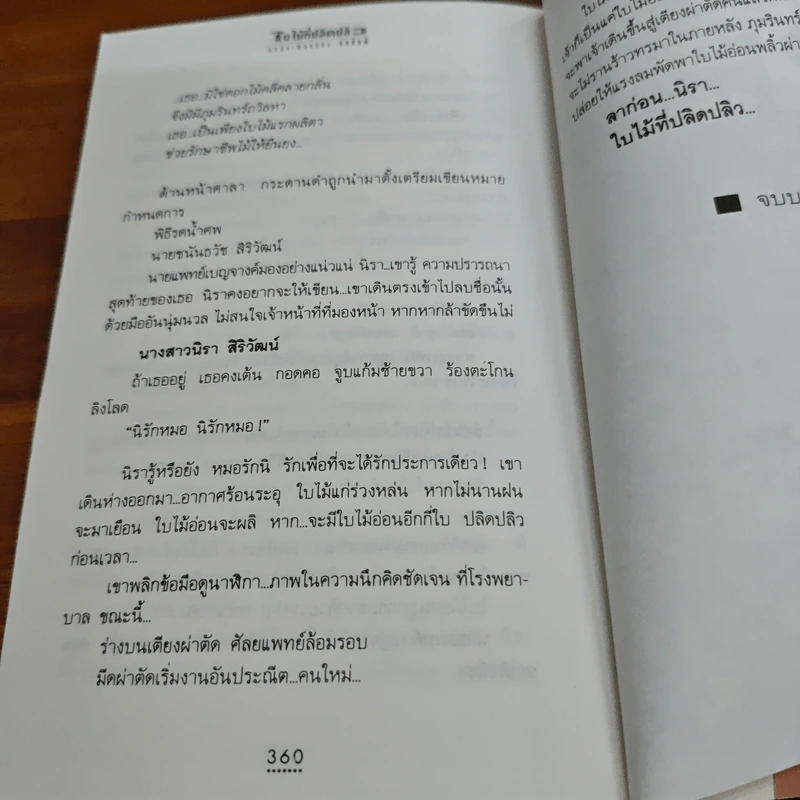 ใบไม้ที่ปลิดปลิว
...เธอ...มิใช่ดอกไม้คลี่คลายกลิ่น
จึงมิมีภุมรินทร์ถวิลหา
เธอ...เป็นเพียงใบไม้แรกผลิตา
ช่วยรักษาชีพไม้ให้ยืนยง...
ด้านหน้าศาลา กระดานดำถูกนำมาตั้งเตรียมเขียนหมาย
กำหนดการ
พิธีรดน้ำศพ
นายชนันธวัช สิริวัฒน์
นายแพทย์เบญจางค์มองอย่างแน่วแน่ นิรา...เขารู้ ความปรารถนา
สุดท้ายของเธอ นิราคงอยากจะให้เขียน...เขาเดินตรงเข้าไปลบชื่อนั้น
ด้วยมืออันนุ่มนวล ไม่สนใจเจ้าหน้าที่ที่มองหน้า หากหากล้าขัดขืนไม่
นางสาวนิรา สิริวัฒน์
ถ้าเธออยู่ เธอคงเต้น กอดคอ จูบแก้มซ้ายขวา ร้องตะโกน
ลิงโลด
“นิรักหมอ นิรักหมอ!”
นิรารู้หรือยัง หมอรักนิ รักเพื่อที่จะได้รักประการเดียว! เขา
เดินห่างออกมา...อากาศร้อนระอุ ใบไม้แก่ร่วงหล่น หากไม่นานฝน
จะมาเยือน ใบไม้อ่อนจะผลิ หาก...จะมีใบไม้อ่อนอีกกี่ใบ ปลิดปลิว
ก่อนเวลา...
เขาพลิกข้อมือดูนาฬิกา...ภาพในความนึกคิดชัดเจน ที่โรงพยา-
บาล ขณะนี้...
ร่างบนเตียงผ่าตัด ศัลยแพทย์ล้อมรอบ
มีดผ่าตัดเริ่มงานอันประณีต...คนใหม่...
360
เจ้าก็เป็นแค่ใบไม้
จะพาเจ้าเดินขึ้นสู่เตียงผ่าตัดคน
จะไม่รานร้าวทรมาในภายหลัง ภุมรินทร์
ปล่อยให้แรงลมพัดพาใบไม้อ่อนพลิ้ว
ลาก่อน...นิรา...
ใบไม้ที่ปลิดปลิว...
■ จบบ